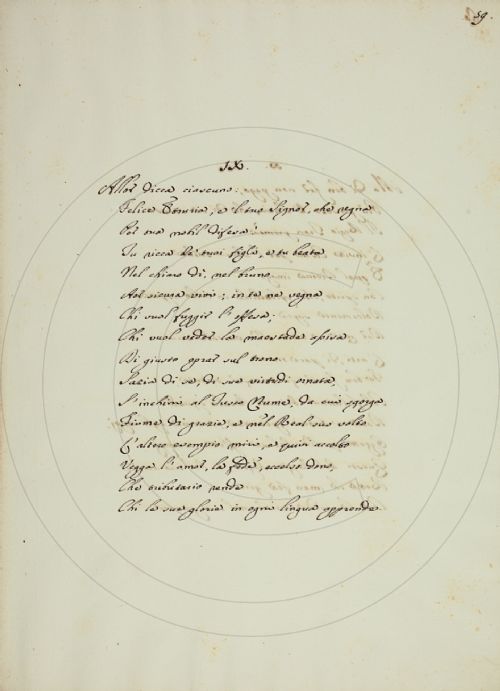 59.
IX.
Allor dicea ciascuno:
Felice Etruria, e 'l tuo Signor, che regna
Per tua nobil difesa!
Tu ricca de' tuoi figli, e tu beata
Nel chiaro dì, nel bruno
Hor sicura vivi; in te ne vegna
Chi vuol fuggir l'offesa;
Chi vuol veder la maestade assisa
Di giusto oprar sul trono
Sazia di se, di sue virtudi ornata,
S'inchini al Tosco Nume, da cui sgorga
Fiume di grazie, e nel Real suo volto
L'altero esempio miri, e quivi accolto
Vegga l'amor, la fede, eccelso dono,
Che tributario rende
Chi le sue glorie in ogni lingua apprende.